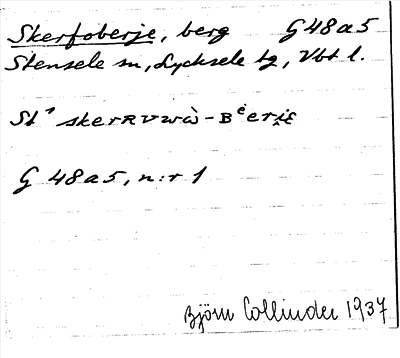 Skerfoberje, berg G48a5
Stensele sn, Lycksele tg, Vbt l.
St¹ skerRvwà-Bᵉerjɛ
G 48a5, n:r 1
Björn Collinder 1937